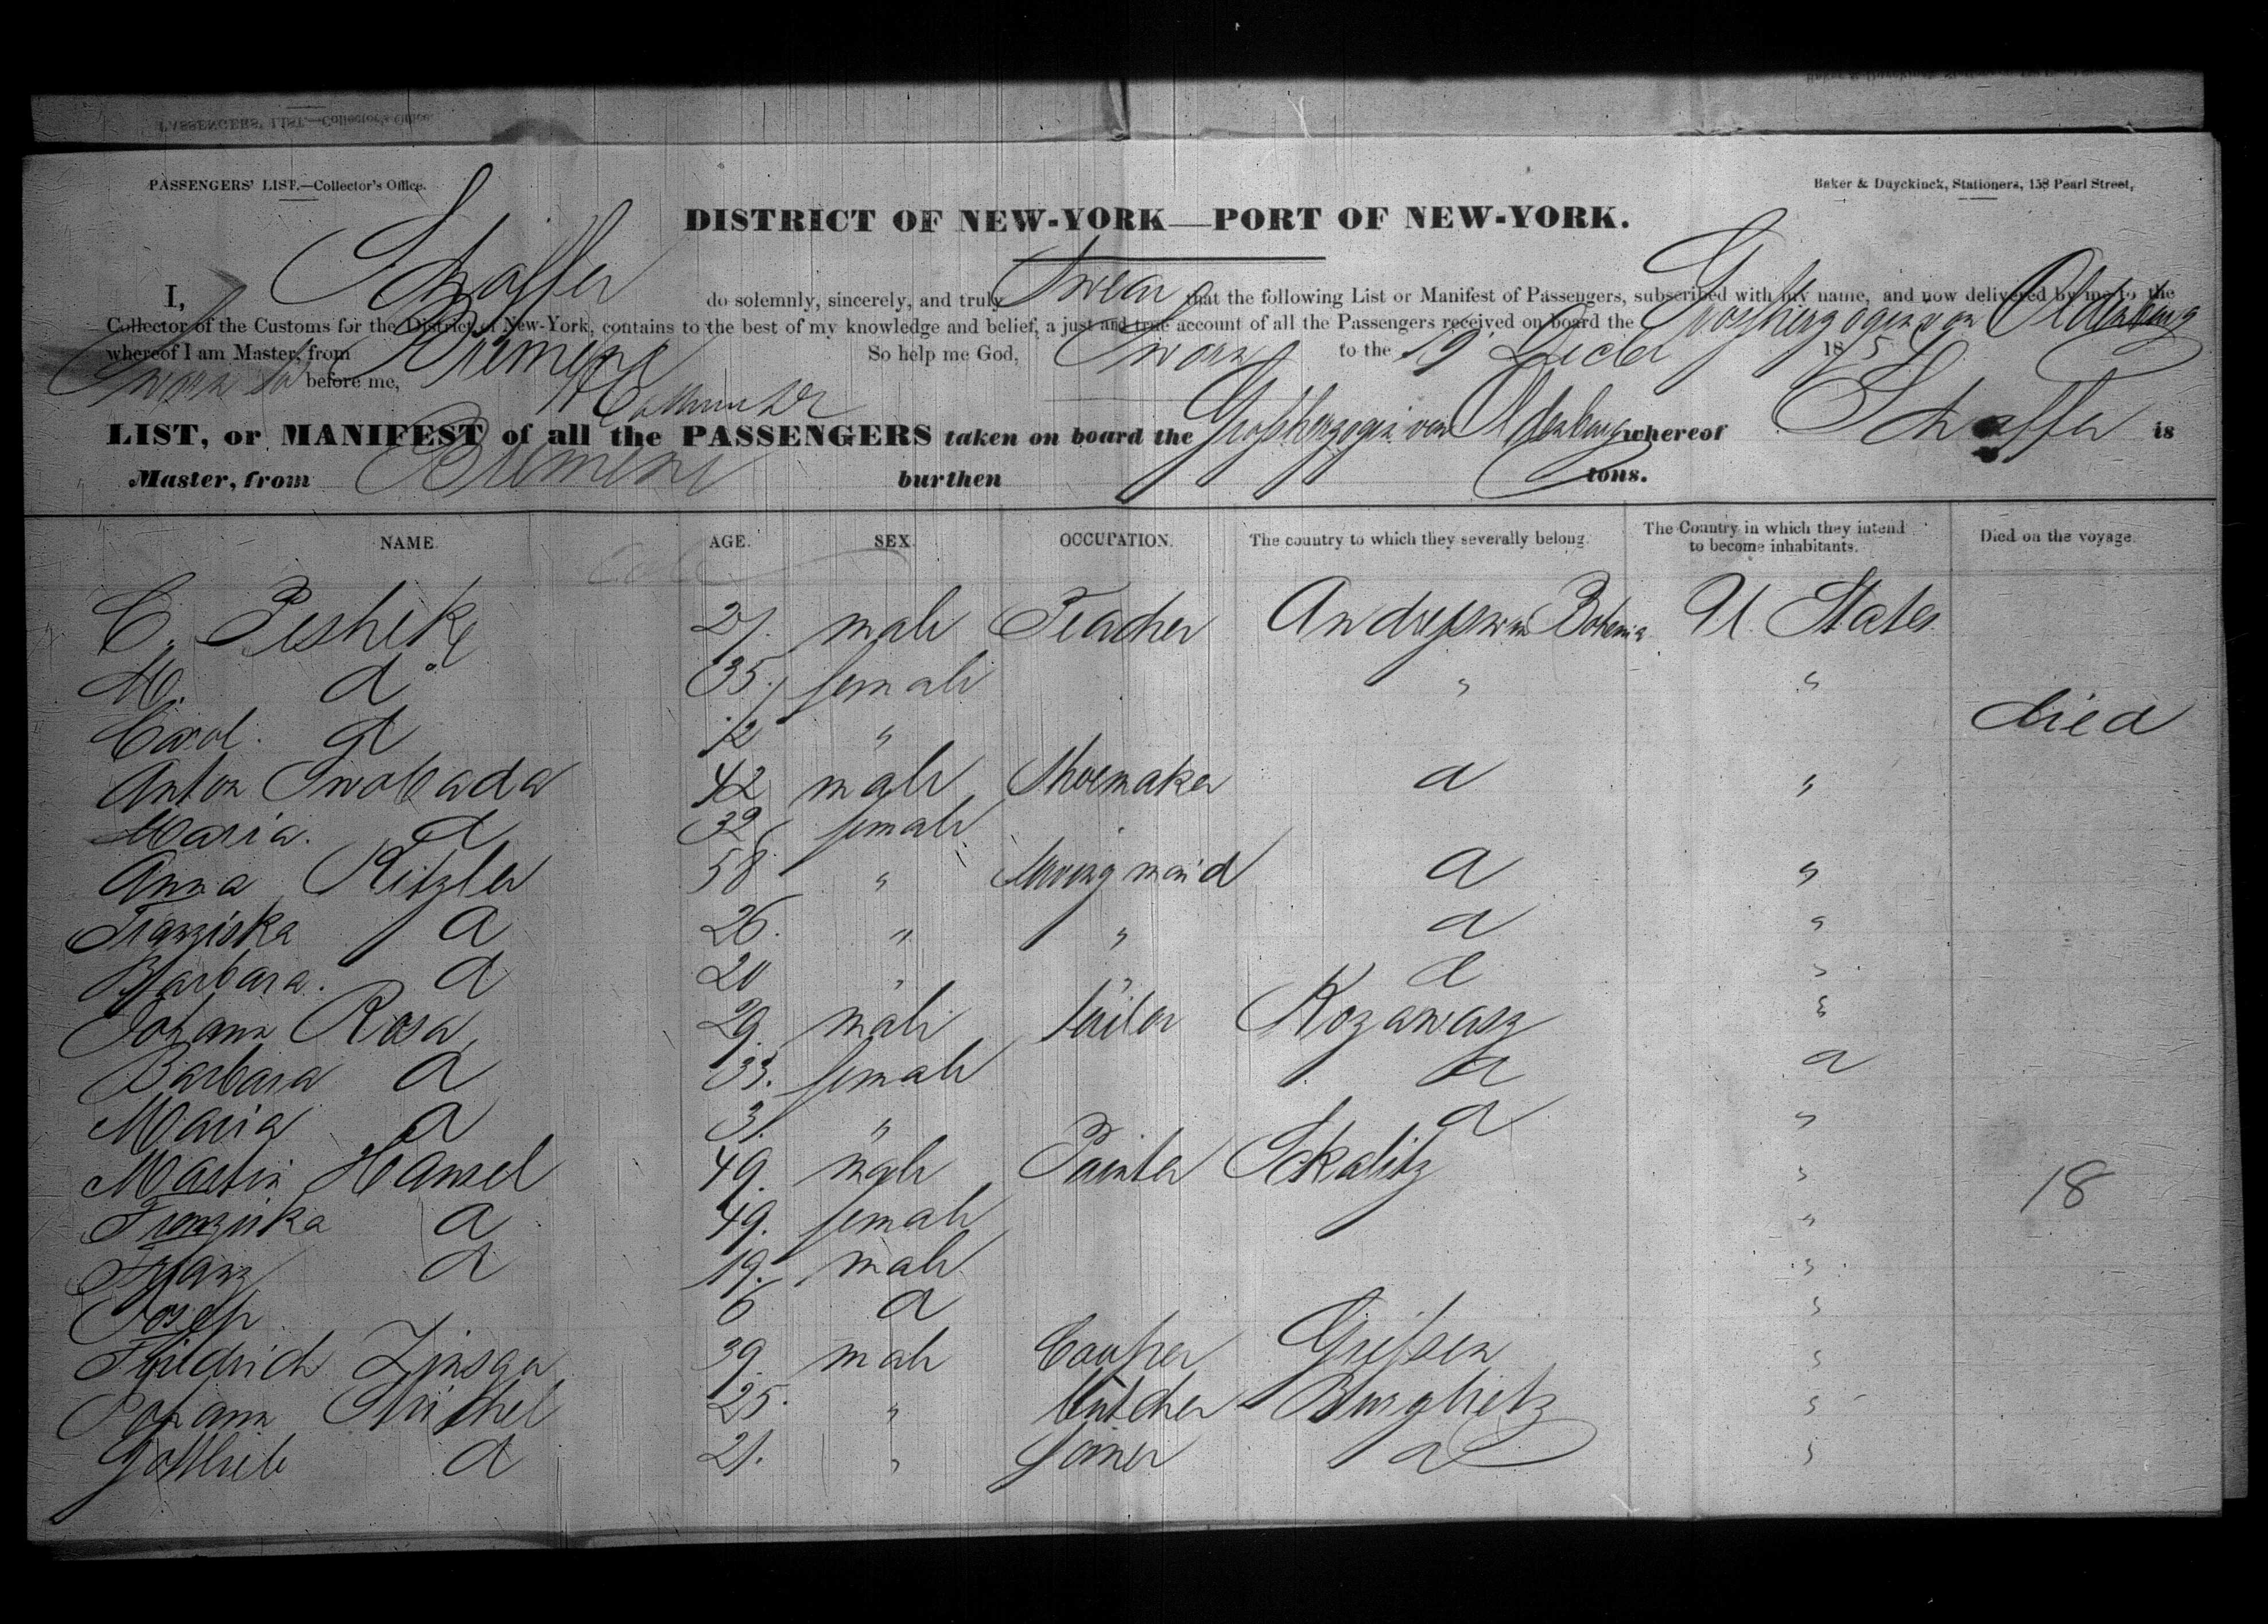 PASSENGERS' LIST.—Collector's Office.
Baker & Duyckinck, Stationers, 158 Pearl Street,
DISTRICT OF NEW-YORK—PORT OF NEW-YORK.
I, Schaffer do solemnly, sincerely, and truly Swear that the following List or Manifest of Passengers, subscribed with my name, and now delivered by me to the
Collector of the Customs for the District of New-York, contains to the best of my knowledge and belief, a just and true account of all the Passengers received on board the Grossherzogin von Oldenburg
whereof I am Master, from Bremen So help me God, Sworn to the 19 185
Sworn to before me,
LIST, or MANIFEST of all the PASSENGERS taken on board the Großherzogin von Oldenburg whereof Schaffer is
Master, from Bremen burthen tons.
NAME. AGE. SEX. OCCUPATION. The country to which they severally belong. The Country in which they intend to become inhabitants. Died on the voyage.
C. Peshek 27. male Teacher Bohemia U. States
M. do 35. female " "
Carol. d 12 " died
Anton Swobada 42 male Shoemaker d "
Maria. d 32 female
Anna Kitzler 58 " Serving maid d "
Franziska d 26. " " d "
Barbara. d 20 " " d "
Johann Rosa 29. male Tailor Kozawasz "
Barbara d 33. female d d
Maria d 3. " d "
Martin Hansel 49. male Painter Skalitz " 18
Franziska d 49. female "
Franz d 19. male "
Josep 6 d "
Friedrich 39. male Couper "
Johann 25. " butcher Burglietz "
Gottlieb d 21. " Joiner d "